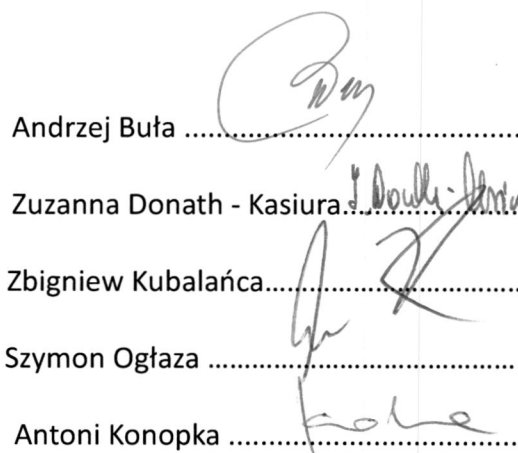 Andrzej Buła ........................................
Zuzanna Donath - Kasiura........................
Zbigniew Kubalańca..................................
Szymon Ogłaza ........................................
Antoni Konopka .....................................